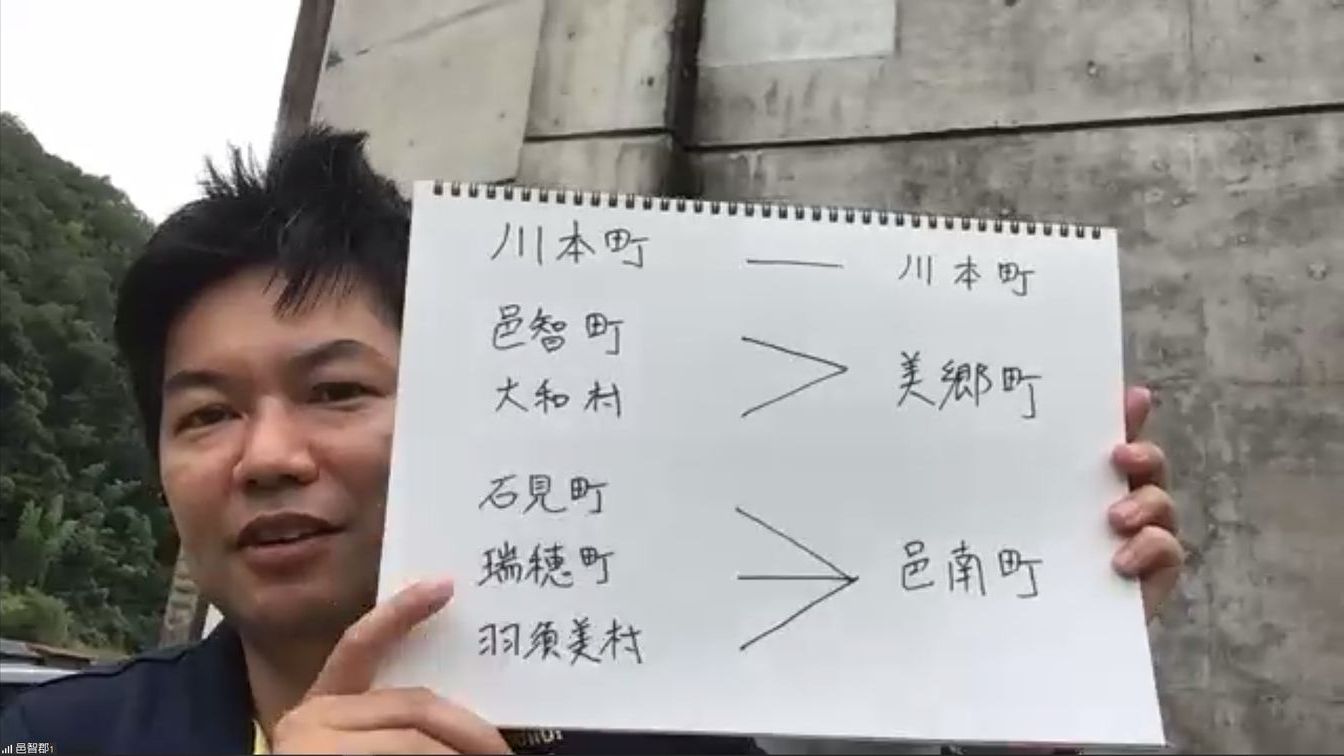 川本町 — 川本町
邑智町
大和村
美郷町
石見町
瑞穂町
羽須美村
邑南町
邑智郡1